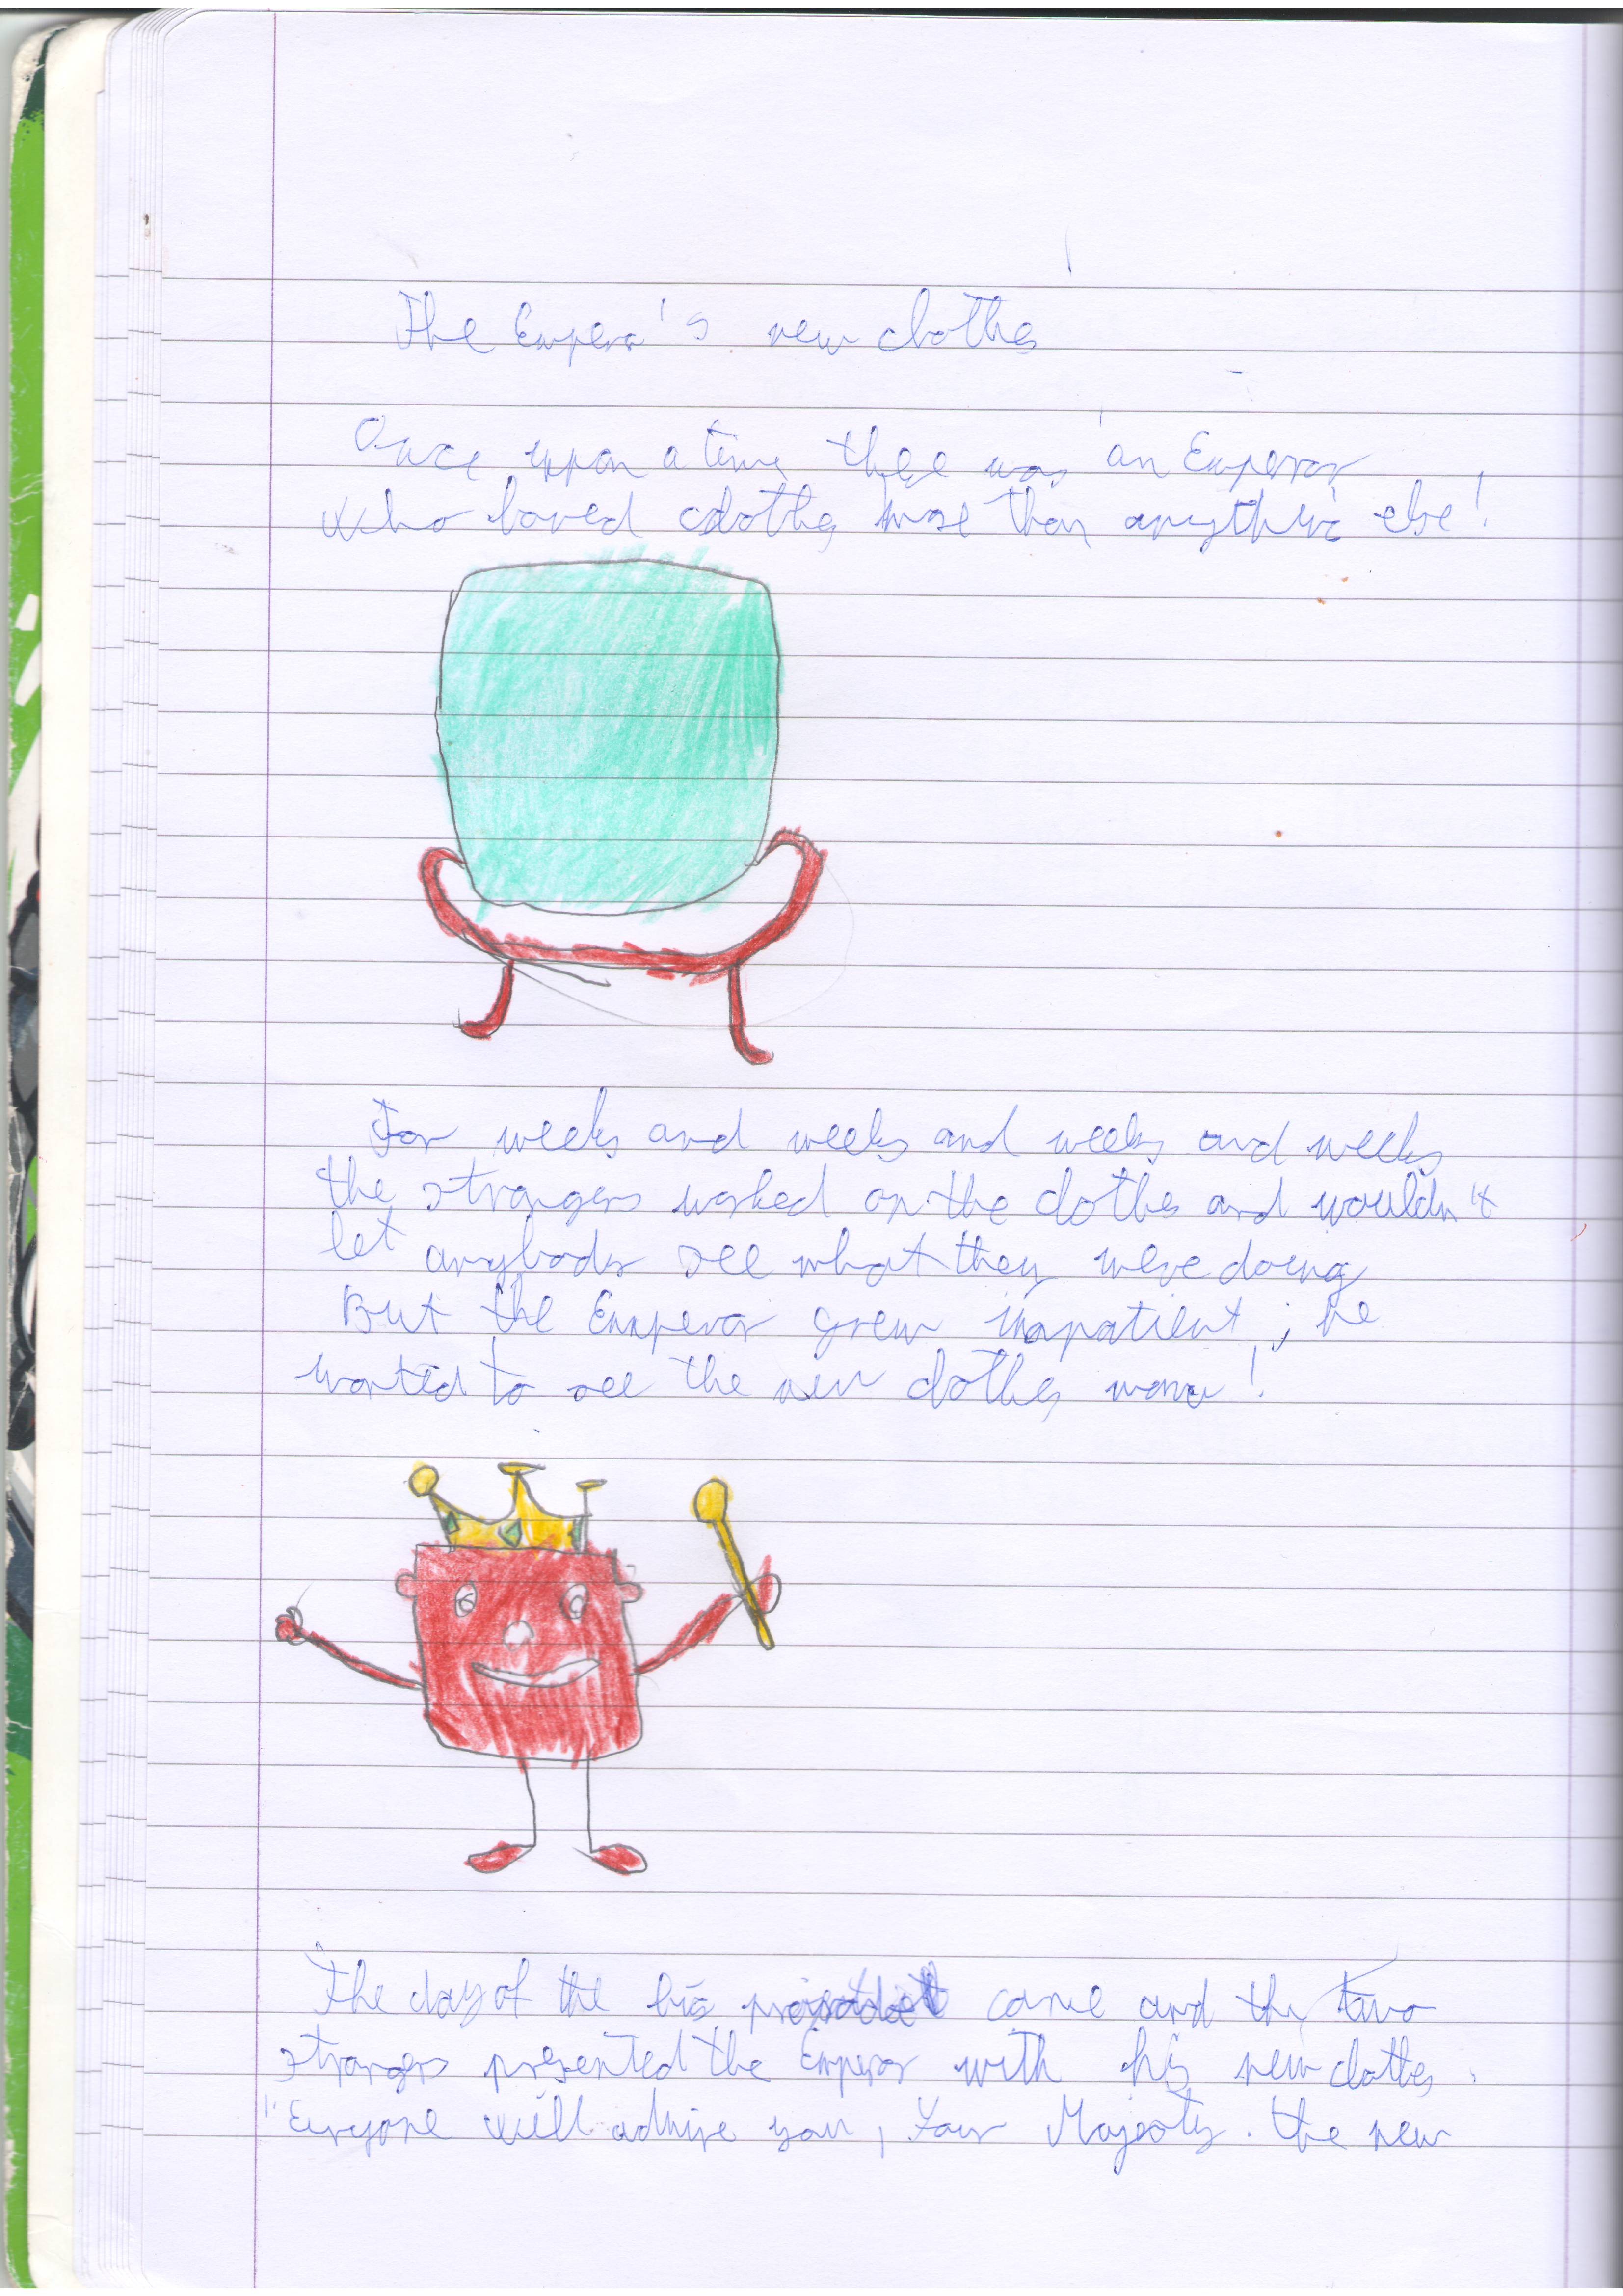 The Empero's new clothes
Once uppon a time thee was an Emperor
who loved clothes more than anything else!
For weeks and weeks and weeks and weeks
the strangers worked on the clothes and wouldn't
let anybody see what they were doing
But the Emperor grew impatient; he
wanted to see the new clothes now!
The day of the big came and the two
strangers presented the Emperor with his new clothes.
"Eveyone will admire you, Your Majesty. the new